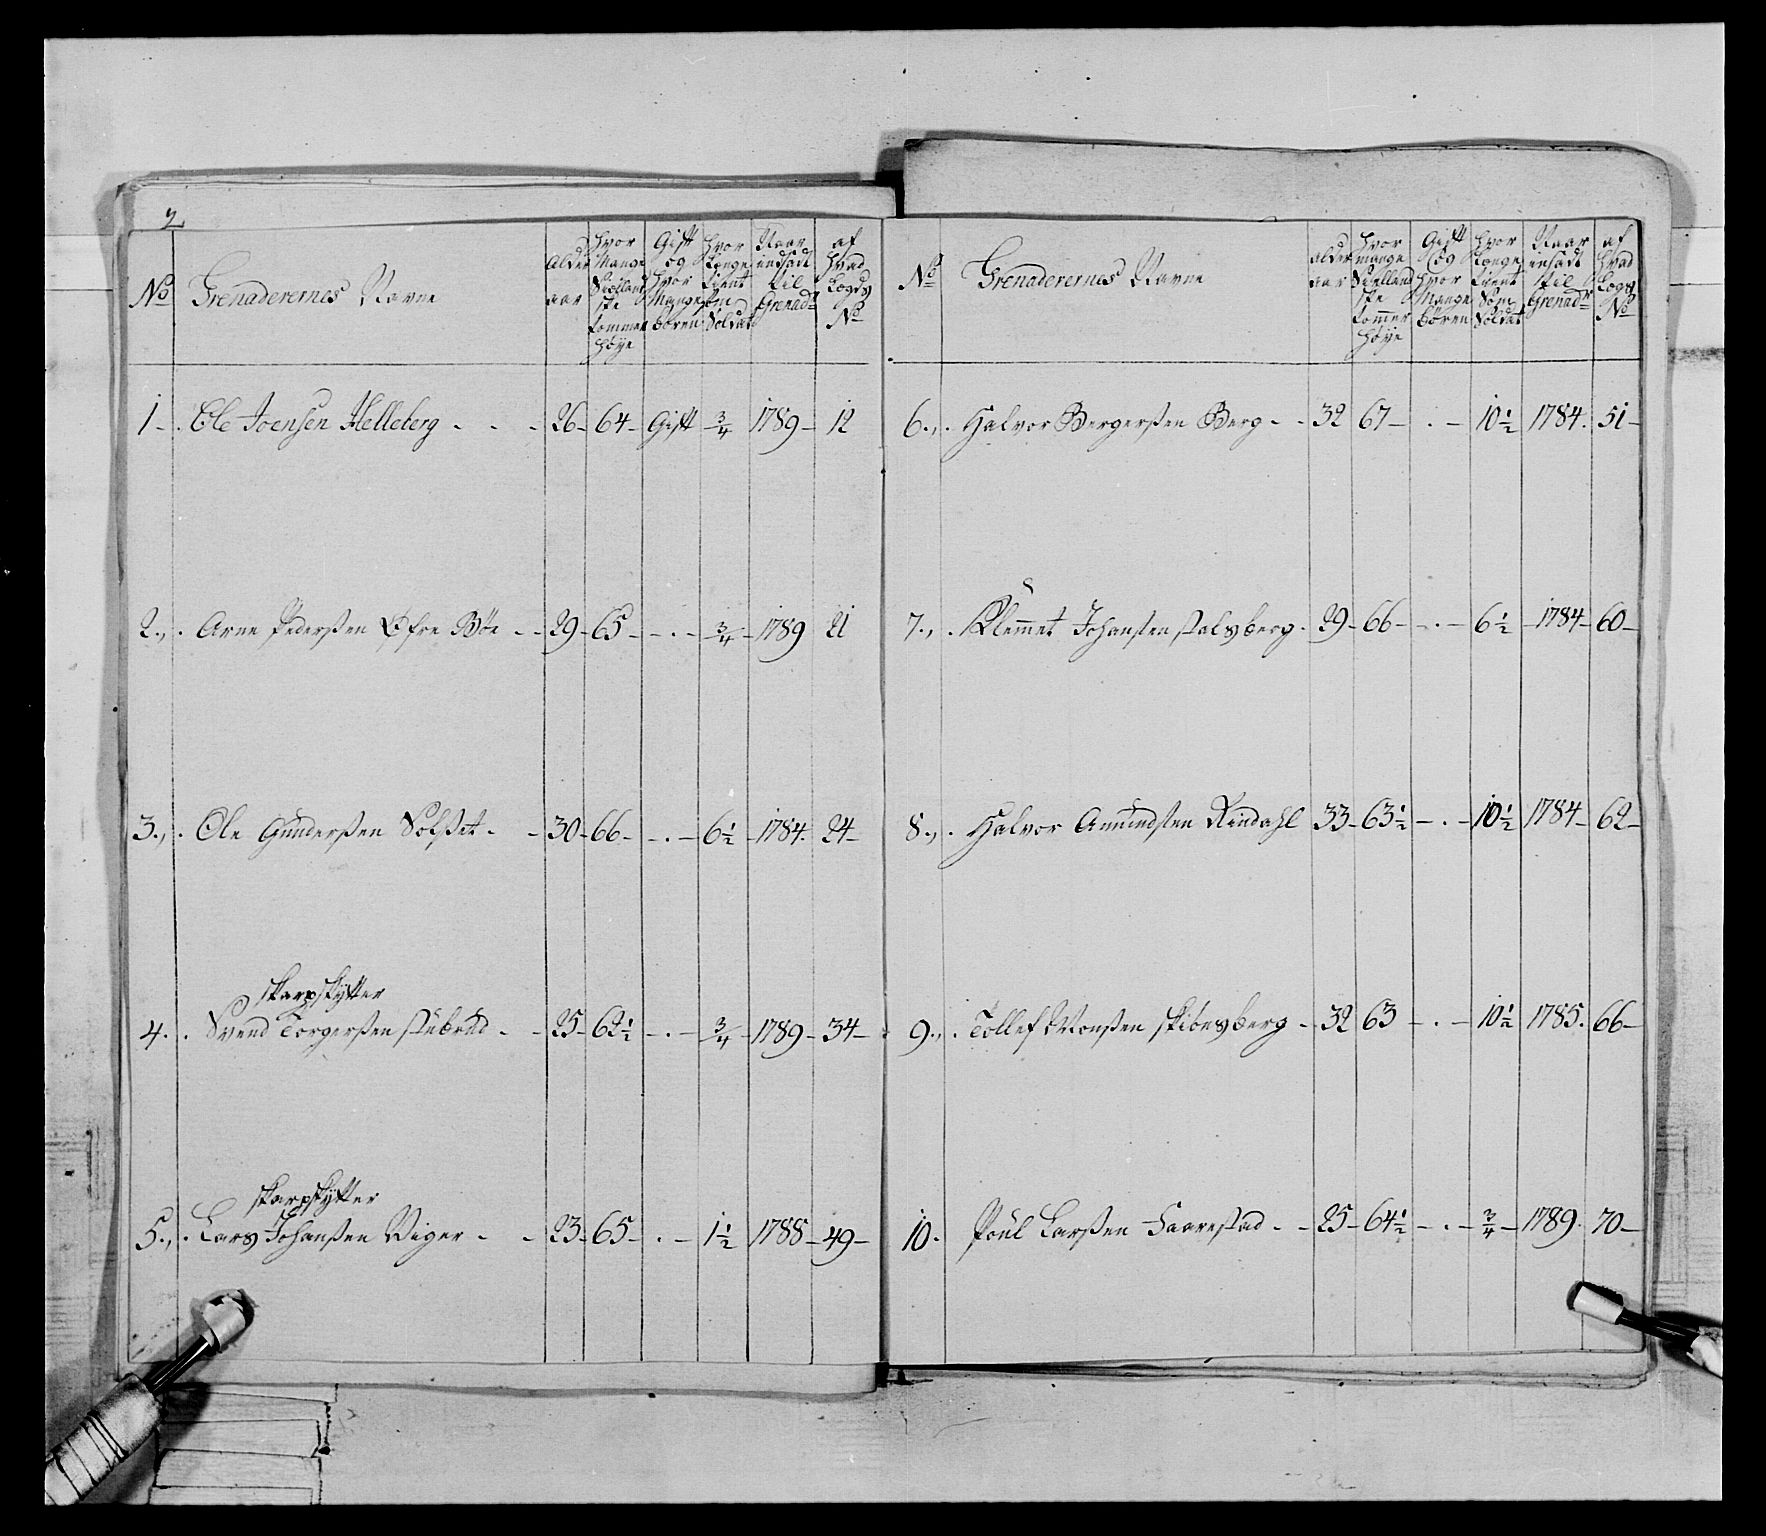 2
No Grenaderernes Navne Alder aar hvor Mange Siellandske tommer höye Gift og hvor Mange Bören hvor Længe tient som Soldat Naar indsadt til Grenadr af hvad Lægds No
1 Ole Joensen Helleberg 26 64 Gift 3/4 1789 12
2 Arne Pedersen Øfre Böe 29 65 3/4 1789 21
3 Ole Gundersen Solset 30 66 6 1/2 1784 24
skarpskytter
4 Svend Torgersen Stubrud 25 62 1/2 3/4 1789 34
skarpskytter
5 Lars Johansen Viger 23 65 1 1/2 1788 49
No Grenaderernes Navne alder aar hvor mange Siellandske tommer höye Gift og hvor Mange Bören hvor Længe tient Som Soldat Naar insadt til Grenadr af hvad Lægds No
6 Halvor Bergersen Berg 32 67 10 1/2 1784 51
7 Klemmet Johansen 29 66 6 1/2 1784 60
8 Halvor Amundsen Rindahl 33 63 1/2 10 1/2 1784 62
9 Tollef Monsen Skibnsberg 32 63 10 1/2 1785 66
10 Poul Larsen Haarestad 25 64 1/2 3/4 1789 70